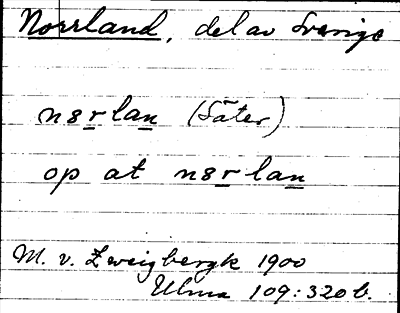 Norrland, del av Sverige
n8rlan (Säter)
op at n8rlan
M. v. Zweigbergk 1900
Ulma 109:320 b.